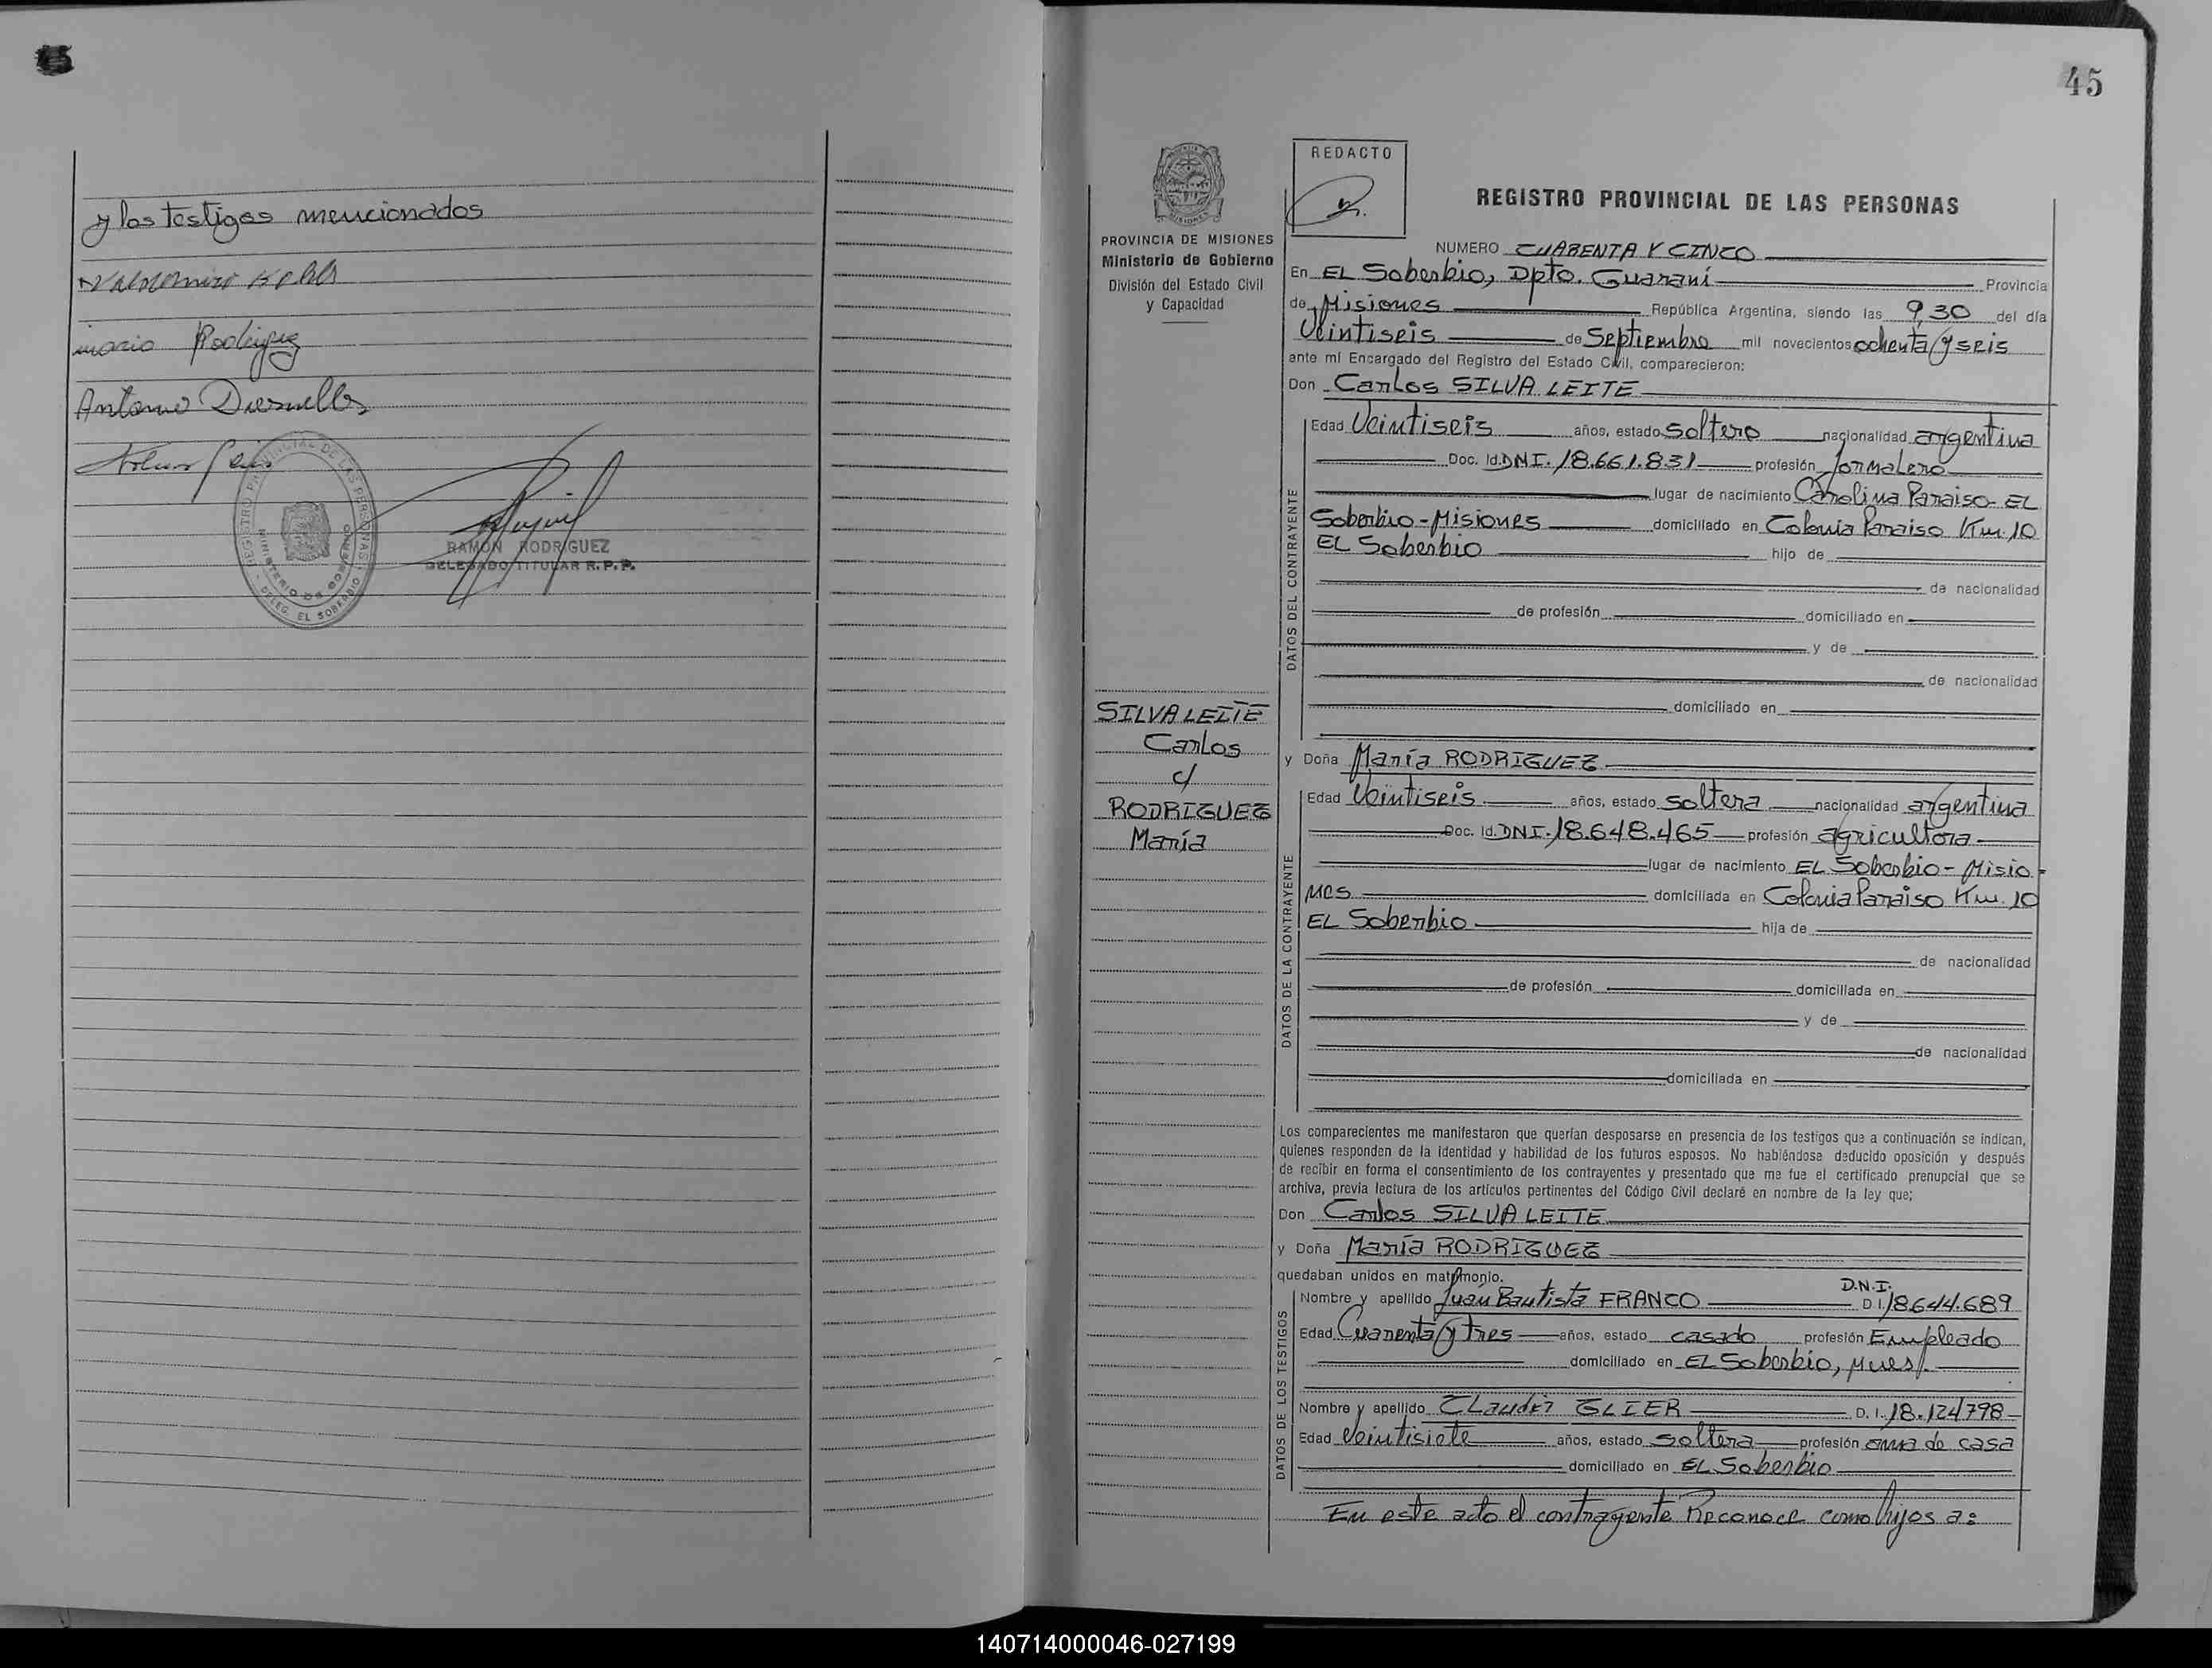 y los testigos mencionados
mario Rodriguez
Antonio
REGISTRO PROVINCIAL DE LAS PERSONAS
MINISTERIO DE GOBIERNO
DELEG. EL SOBERBIO
RAMÓN RODRIGUEZ
DELEGADO TITULAR R.P.P.
45
PROVINCIA DE MISIONES
Ministerio de Gobierno
División del Estado Civil
y Capacidad
SILVA LEITE
Carlos
c/
RODRIGUEZ
María
REDACTO
REGISTRO PROVINCIAL DE LAS PERSONAS
NUMERO CUARENTA Y CINCO
En EL Soberbio, Dpto. Guaraní Provincia
de Misiones República Argentina, siendo las 9,30 del día
Veintiseis de Septiembre mil novecientos ochenta y seis
ante mí Encargado del Registro del Estado Civil, comparecieron:
Don Carlos SILVA LEITE
DATOS DEL CONTRAYENTE
Edad Veintiseis años, estado soltero nacionalidad argentina
Doc. Id. DNI. 18.661.831 profesión Jornalero
lugar de nacimiento Carolina Paraiso - EL
Soberbio - Misiones domiciliado en Colonia Paraiso Km. 10
EL Soberbio hijo de
de nacionalidad
de profesión domiciliado en
y de
de nacionalidad
domiciliado en
y Doña María RODRIGUEZ
DATOS DE LA CONTRAYENTE
Edad Veintiseis años, estado soltera nacionalidad argentina
Doc. Id. DNI. 18.648.465 profesión agricultora
lugar de nacimiento EL Soberbio - Misio-
nes domiciliada en Colonia Paraiso Km. 10
EL Soberbio hija de
de nacionalidad
de profesión domiciliada en
y de
de nacionalidad
domiciliada en
Los comparecientes me manifestaron que querían desposarse en presencia de los testigos que a continuación se indican,
quienes responden de la identidad y habilidad de los futuros esposos. No habiéndose deducido oposición y después
de recibir en forma el consentimiento de los contrayentes y presentado que me fue el certificado prenupcial que se
archiva, previa lectura de los artículos pertinentes del Código Civil declaré en nombre de la ley que;
Don Carlos SILVA LEITE
y Doña María RODRIGUEZ
quedaban unidos en matrimonio.
DATOS DE LOS TESTIGOS
D.N.I.
Nombre y apellido Juan Bautista FRANCO D I. 18644.689
Edad Cuarenta y tres años, estado casado profesión Empleado
domiciliado en EL Soberbio, Mnes.
Nombre y apellido GLIER D. I. 18.124798
Edad Veintisiete años, estado soltera profesión ama de casa
domiciliado en EL Soberbio
En este acto el contrayente Reconoce como hijos a:
140714000046-027199